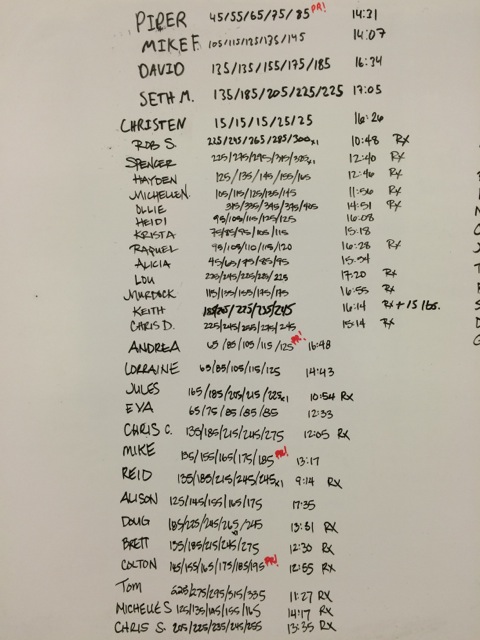 PIPER 45/55/65/75/85 PR! 14:21
MIKE F. 105/115/125/135/145 14:07
DAVID 135/135/155/175/185 16:34
SETH M. 135/185/205/225/225 17:05
CHRISTEN 15/15/15/25/25 16:26
ROB S. 225/245/265/285/300x1 10:48 RX
SPENCER 12:40 RX
HAYDEN 125/135/145/155/165 12:46 RX
MICHELLE N. 105/115/125/135/145 11:56 RX
OLLIE 14:51 RX
HEIDI 95/105/115/125/125 16:08
KRISTA 75/85/95/105/115 15:18
RAQUEL 95/105/110/115/120 16:28 RX
ALICIA 15:54
LOU 17:20 RX
MURDOCK 16:55 RX
KEITH 16:14 RX + 15 lbs.
CHRIS D. 15:14 RX
ANDREA 65/85/105/115/125 PR! 16:48
LORRAINE 65/85/105/115/125 14:43
JULES 165/185/205/215/225x1 10:54 RX
EVA 65/75/85/85/85 12:33
CHRIS C. 135/185/215/245/275 12:05 RX
MIKE 135/155/165/175/185 PR! 13:17
REID 135/185/215/245/245x1 9:14 RX
ALISON 125/145/155/165/175 17:35
DOUG 185/225/245/265/245 13:51 RX
BRETT 135/185/215/245/275 12:30 RX
COLTON 145/155/165/175/185/195 PR! 12:55 RX
TOM 225/275/295/315/335 11:27 RX
MICHELLE S 125/135/145/155/165 14:17 RX
CHRIS S. 205/225/235/245/255 13:35 RX